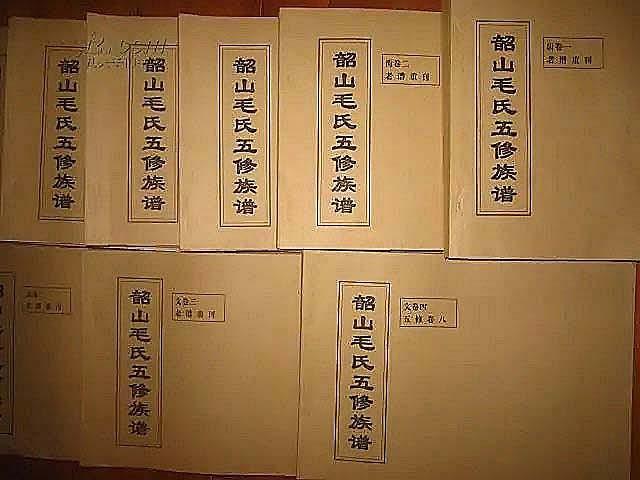 韶山毛氏五修族谱
韶山毛氏五修族谱
韶山毛氏五修族谱
韶山毛氏五修族谱
卷二
老谱重刊
韶山毛氏五修族谱
卷一
老谱重刊
老谱重刊
韶山毛氏五修族谱
文卷三
老谱重刊
韶山毛氏五修族谱
文卷四
五修卷八